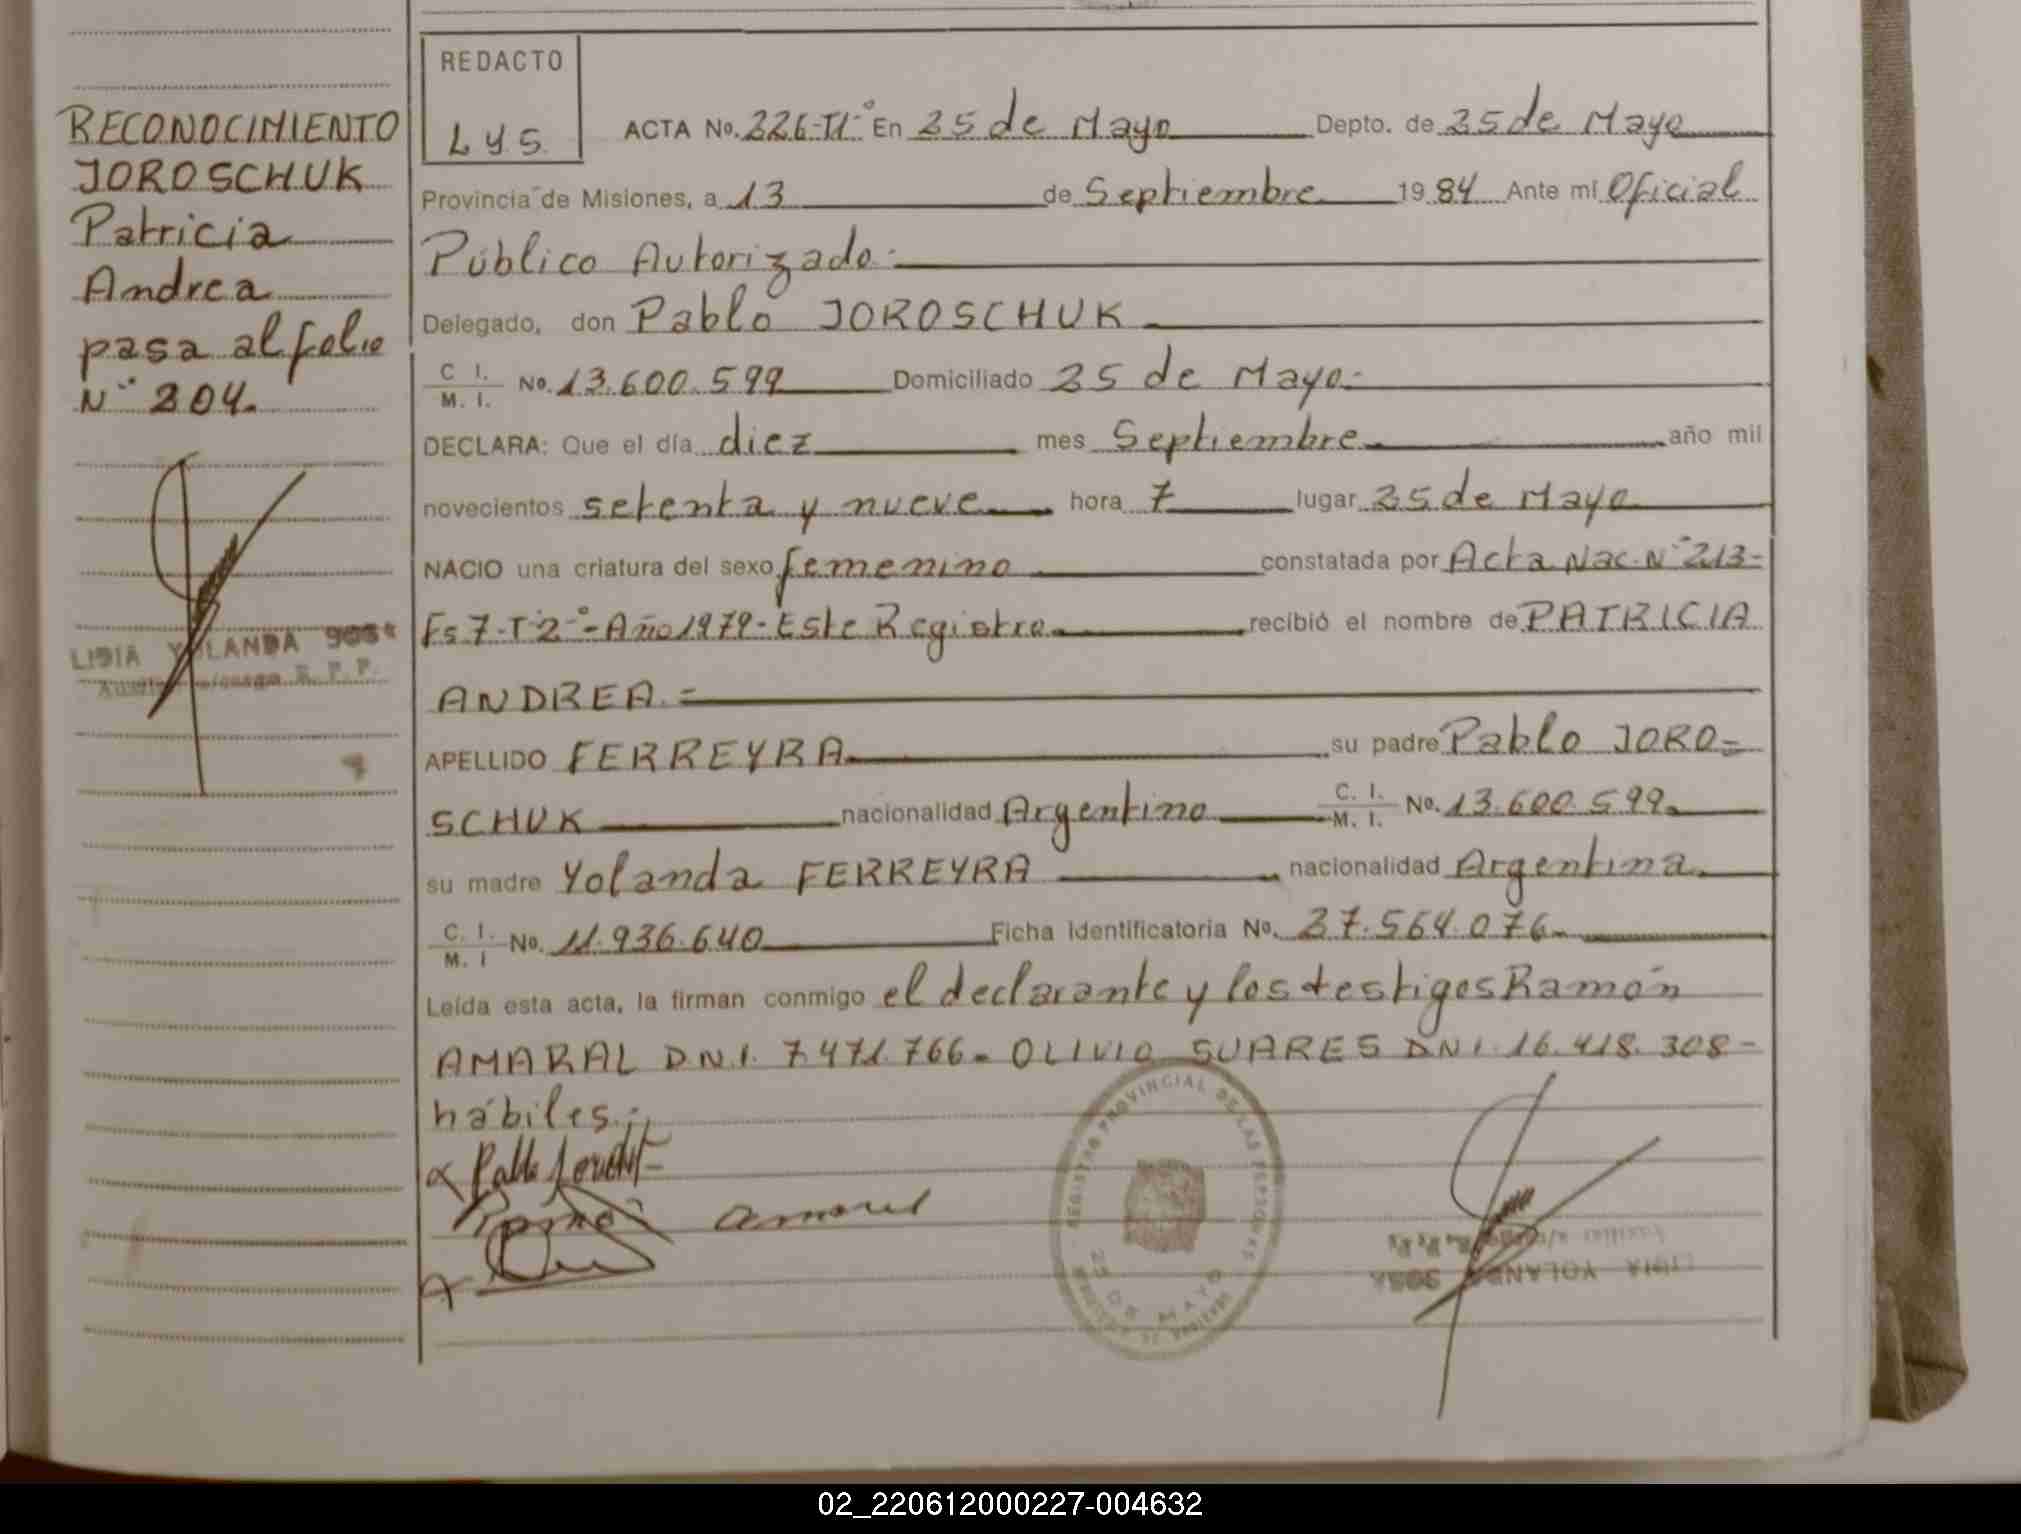 RECONOCIMIENTO
JOROSCHUK
Patricia
Andrea
pasa al folio
N° 204.
LIDIA YOLANDA SOSA
REDACTO
L Y S.
ACTA No. 226-T1° En 25 de Mayo Depto. de 25 de Mayo
Provincia de Misiones, a 13 de Septiembre 19 84 Ante mi Oficial
Público Autorizado.-
Delegado, don Pablo JOROSCHUK
C. I. / M. I. No. 13.600.599 Domiciliado 25 de Mayo.-
DECLARA: Que el día diez mes Septiembre año mil
novecientos setenta y nueve hora 7 lugar 25 de Mayo
NACIO una criatura del sexo femenino constatada por Acta Nac. N° 213-
Fs 7-T 2°-Año 1979-Este Registro recibió el nombre de PATRICIA
ANDREA.=
APELLIDO FERREYRA su padre Pablo JORO=
SCHUK nacionalidad Argentino C. I. / M. I. No. 13.600.599
su madre Yolanda FERREYRA nacionalidad Argentina
C. I. / M. I No. 11.936.640 Ficha identificatoria No. 27.564.076
Leída esta acta, la firman conmigo el declarante y los testigos Ramón
AMARAL D.N.I. 7.471.766- OLIVIO SUARES DNI. 16.418.308-
hábiles.;
REGISTRO PROVINCIAL DE LAS PERSONAS
25 DE MAYO
LIDIA YOLANDA SOSA
02_220612000227-004632